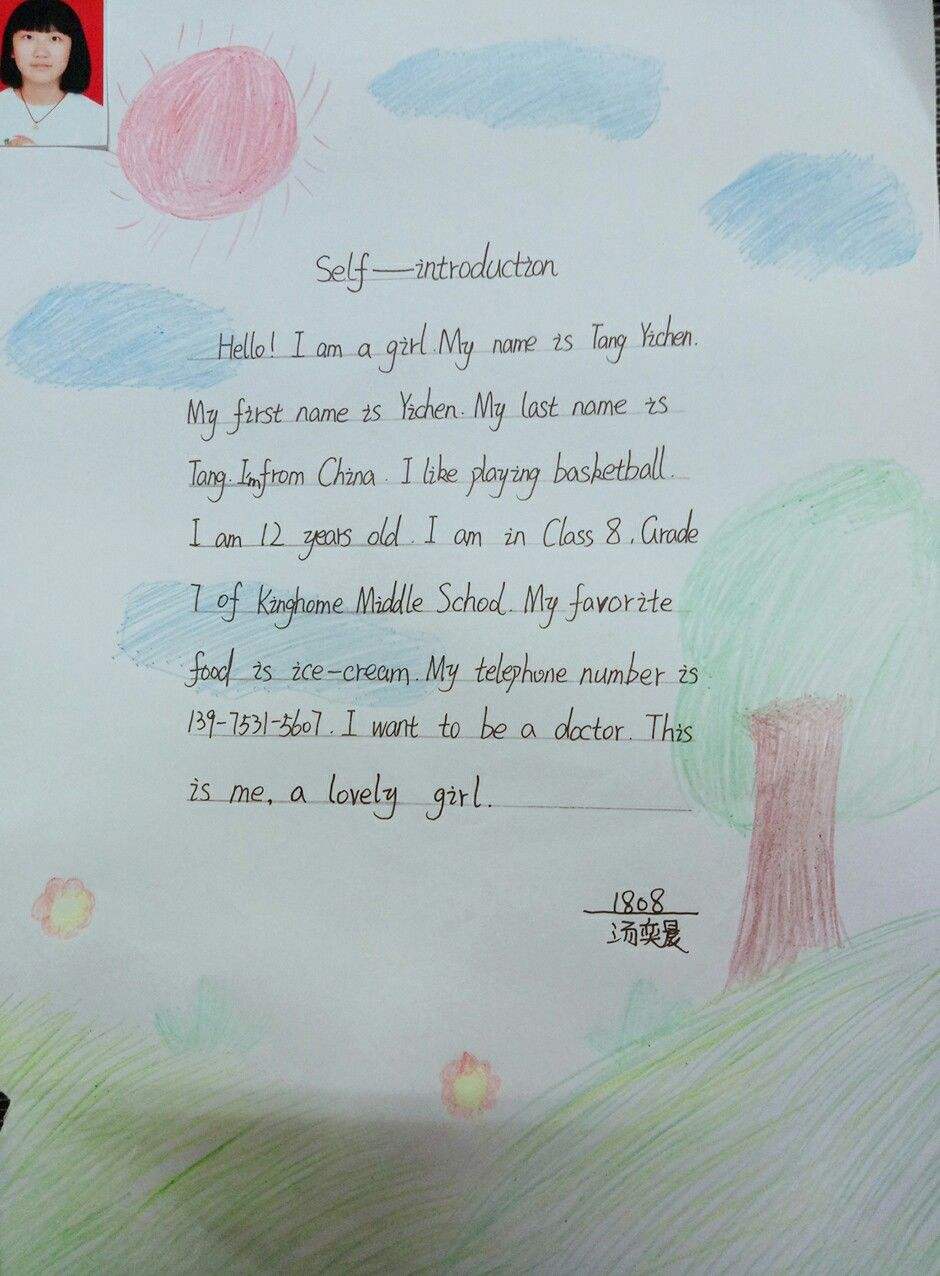 Self—introduction
Hello! I am a girl. My name is Tang Yichen.
My first name is Yichen. My last name is
Tang. I'm from China. I like playing basketball.
I am 12 years old. I am in Class 8, Grade
7 of Kinghome Middle School. My favorite
food is ice-cream. My telephone number is
139-7531-5607. I want to be a doctor. This
is me, a lovely girl.
1808
汤奕晨